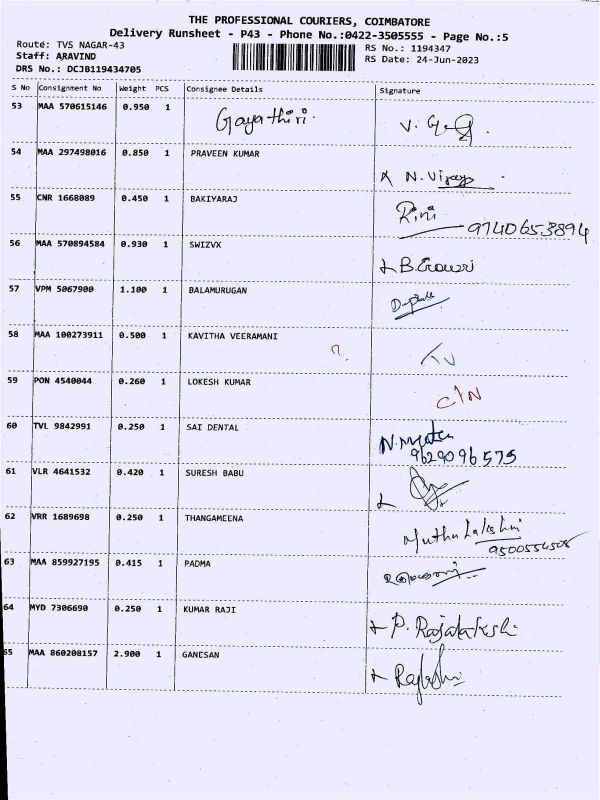 THE PROFESSIONAL COURIERS, COIMBATORE
Delivery Runsheet - P43 - Phone No.:0422-3505555 - Page No.:5
Route: TVS NAGAR-43
RS No.: 1194347
Staff: ARAVIND
RS Date: 24-Jun-2023
DRS No.: DCJB119434705
S No Consignment No Weight PCS Consignee Details Signature
53 MAA 570615146 0.950 1 Gayathiri
54 MAA 297498016 0.850 1 PRAVEEN KUMAR
N. Vijaya
55 CNR 1668089 0.450 1 BAKIYARAJ Rini
9740653894
56 MAA 570894584 0.930 1 SWIZVX
B. Gowri
57 VPM 5067900 1.100 1 BALAMURUGAN
58 MAA 100273911 0.500 1 KAVITHA VEERAMANI
?
59 PON 4540044 0.260 1 LOKESH KUMAR
C/N
60 TVL 9842991 0.250 1 SAI DENTAL
9629096575
61 VLR 4641532 0.420 1 SURESH BABU
62 VRR 1689698 0.250 1 THANGAMEENA
Muthu Lakshmi
63 MAA 859927195 0.415 1 PADMA
64 MYD 7306690 0.250 1 KUMAR RAJI
P. Rajalakshi
65 MAA 860208157 2.900 1 GANESAN